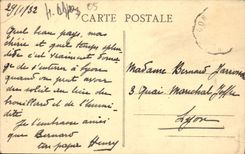 29/1/32
H. Alpes 05
CARTE POSTALE
Quel beau pays, ma
chérie et quel temps splen-
dide c'est vraiment dom-
mage de t'enterrer à Lyon
quand on peut avoir
du soleil au lieu du
brouillard et de l'humi-
dité
Je t'embrasse ainsi
que Bernard
ton papa Henry
Madame Bernard
3 Quai Marechal Joffre
Lyon